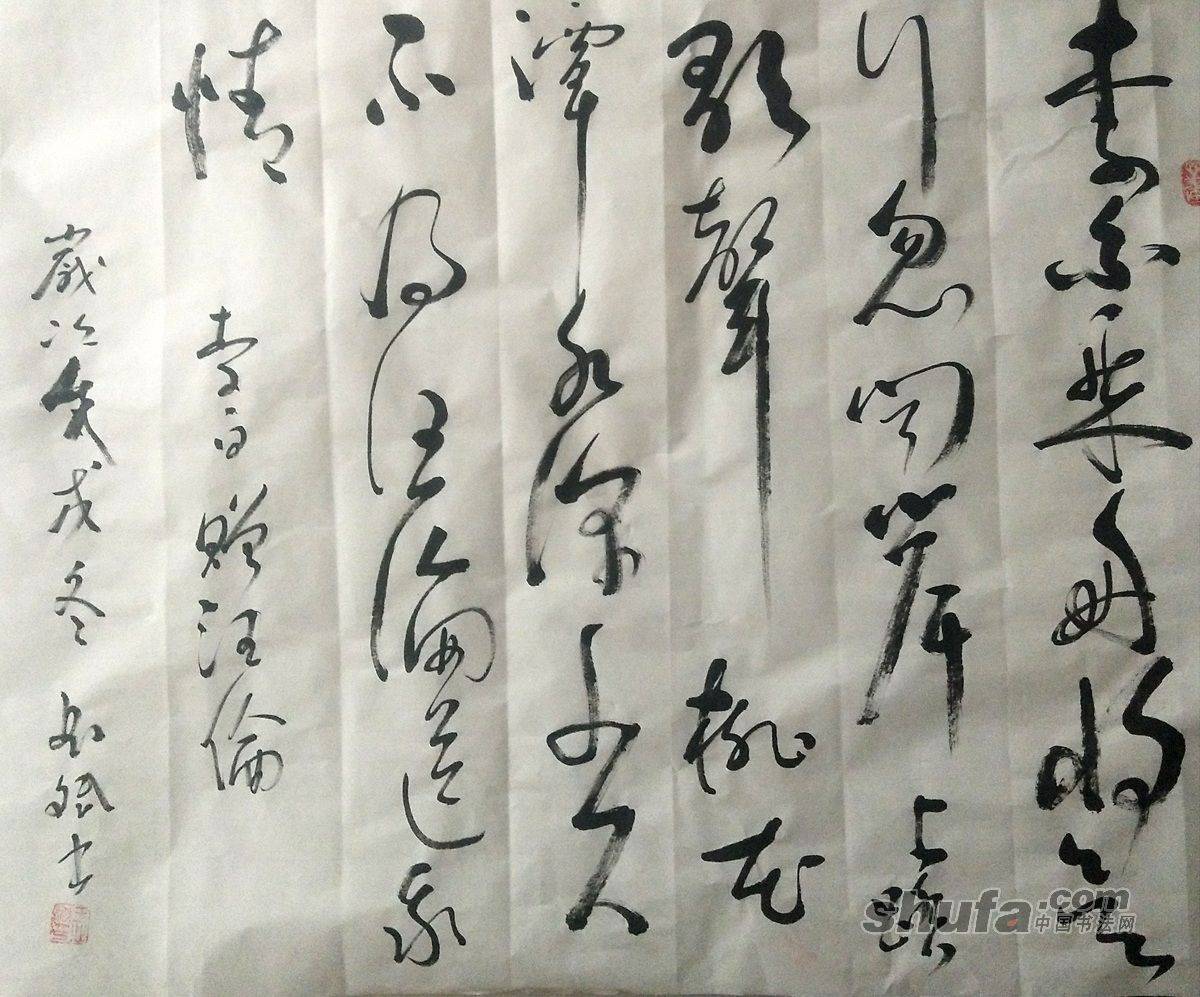 李白乘舟将欲
行忽闻岸上踏
歌聲桃花
潭水深千尺
不及汪倫送我
情 李白贈汪倫
歲次戊戌冬 书
shufa.com
中国书法网